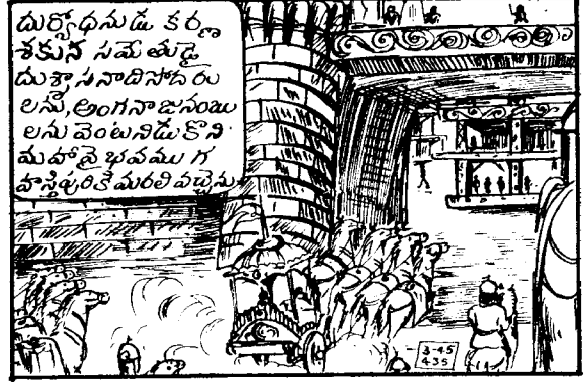 దుర్యోధనుడు కర్ణ
శకుని సమేతుడై
దుశ్శాసనాదిసోదరు
లను, అంగనాజనంబు
లను వెంటనిడుకొని
మహావైభవముగ
హస్తిపురికి మరలి వచ్చెను.
3-45
435